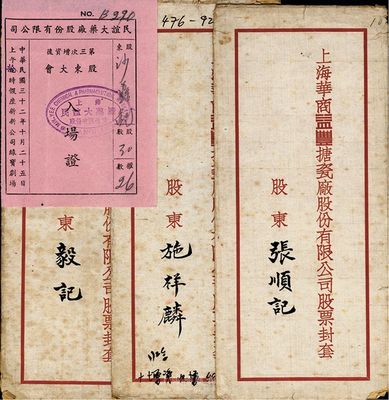 NO. B990
民誼大藥廠股份有限公司
第三次增資後
股東大會
入場證
中華民國三十二年十月二十五日
上午 時假座新新公司綠寶劇場
股東
股數 30
權數 26
476-92
上海華商 搪瓷廠股份有限公司股票封套
股東 張順記
股東 施祥麟
股東 毅記
股份有限公司股票封套